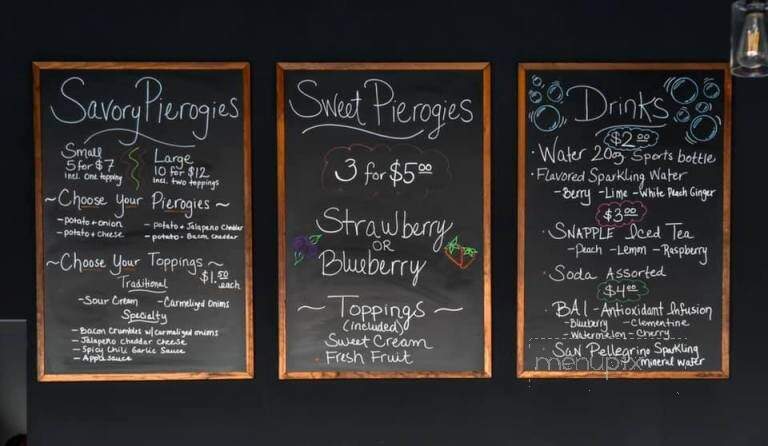 Savory Pierogies
Small
5 for $7
incl. one topping
Large
10 for $12
Incl. two toppings
~Choose Your Pierogies~
-potato+onion
-potato+cheese
-potato+Jalapeño Cheddar
-potato+Bacon Cheddar
~Choose Your Toppings~
$1.50 each
Traditional
-Sour Cream -Carmelized Onions
Specialty
-Bacon Crumbles w/carmalized onions
-Jalapeño cheddar cheese
-Spicy Chili Garlic Sauce
-Applesauce
Sweet Pierogies
3 for $5.00
Strawberry
OR
Blueberry
~Toppings~
(included)
Sweet Cream
Fresh Fruit
Drinks
$2.00
·Water 20oz Sports bottle
·Flavored Sparkling Water
-Berry -Lime -White Peach Ginger
$3.00
·SNAPPLE Iced Tea
-Peach -Lemon -Raspberry
·Soda Assorted
$4.00
·BAI-Antioxidant Infusion
-Blueberry -Clementine
-Watermelon -Cherry
·San Pellegrino Sparkling
mineral water
menupix